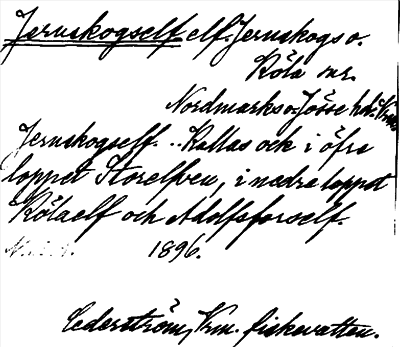 Jernskogself elf. Jernskogs o.
Köla snr.
Nordmarks o. Jösse hd. Vrml.
Jernskogself. .. Kallas ock i öfre
loppet Storelfven, i nedre loppet
Kölaelf och Adolfsforself.
1896.
Cederström, Vrm. fiskevatten.